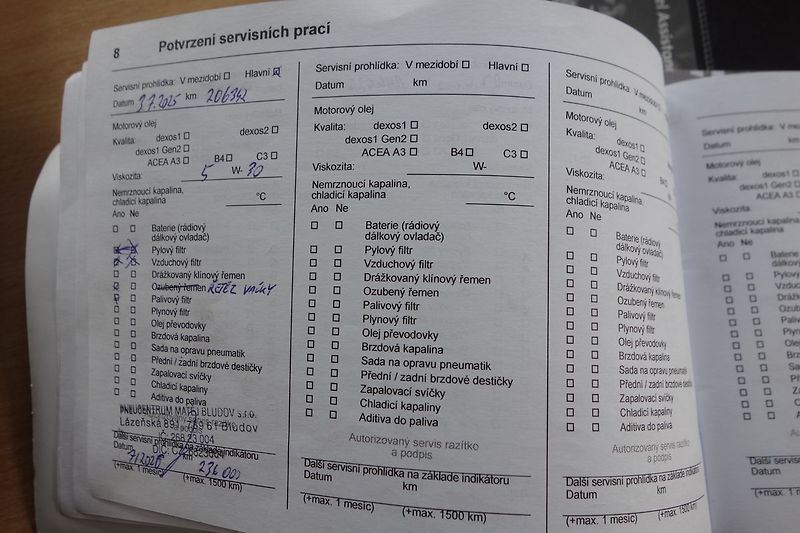 8 Potvrzení servisních prací
Servisní prohlídka: V mezidobí Hlavní
Datum 3.7.2025 km 206342
Motorový olej
Kvalita: dexos1 dexos2
dexos1 Gen2
ACEA A3 B4 C3
Viskozita: 5 W- 30
Nemrznoucí kapalina,
chladicí kapalina °C
Ano Ne
Baterie (rádiový
dálkový ovladač)
Pylový filtr
Vzduchový filtr
Drážkovaný klínový řemen
Ozubený řemen ŘETĚZ VAČKY
Palivový filtr
Plynový filtr
Olej převodovky
Brzdová kapalina
Sada na opravu pneumatik
Přední / zadní brzdové destičky
Zapalovací svíčky
Chladicí kapaliny
Aditiva do paliva
PNEUCENTRUM MATEJ BLUDOV s.r.o.
Lázeňská 891, 789 61 Bludov
Další servisní prohlídka na základě indikátoru
Datum km
236 000
(+max. 1 měsíc) (+max. 1500 km)
Servisní prohlídka: V mezidobí Hlavní
Datum km
Motorový olej
Kvalita: dexos1 dexos2
dexos1 Gen2
ACEA A3 B4 C3
Viskozita: W-
Nemrznoucí kapalina,
chladicí kapalina °C
Ano Ne
Baterie (rádiový
dálkový ovladač)
Pylový filtr
Vzduchový filtr
Drážkovaný klínový řemen
Ozubený řemen
Palivový filtr
Plynový filtr
Olej převodovky
Brzdová kapalina
Sada na opravu pneumatik
Přední / zadní brzdové destičky
Zapalovací svíčky
Chladicí kapaliny
Aditiva do paliva
Autorizovaný servis razítko
a podpis
Další servisní prohlídka na základě indikátoru
Datum km
(+max. 1 měsíc) (+max. 1500 km)
Servisní prohlídka: V mezidobí
Datum km
Motorový olej
Kvalita: dexos1
dexos1 Gen2
ACEA A3
Viskozita:
Nemrznoucí kapalina,
chladicí kapalina
Ano Ne
Baterie (rádiový
dálkový ovladač)
Pylový filtr
Vzduchový filtr
Drážkovaný klínový řemen
Ozubený řemen
Palivový filtr
Plynový filtr
Olej převodovky
Brzdová kapalina
Sada na opravu pneumatik
Přední / zadní brzdové
Zapalovací svíčky
Chladicí kapaliny
Aditiva do paliva
Autorizovaný servis razítko
a podpis
Další servisní prohlídka na základě
Datum km
(+max. 1 měsíc) (+max. 1500 km)
Servisní prohlídka: V
Datum
Motorový olej
Kvalita: dexos1
dexos1 Gen2
ACEA A3
Viskozita:
Nemrznoucí kapalina,
chladicí kapalina
Ano Ne
Další servisní
Datum
(+max. 1